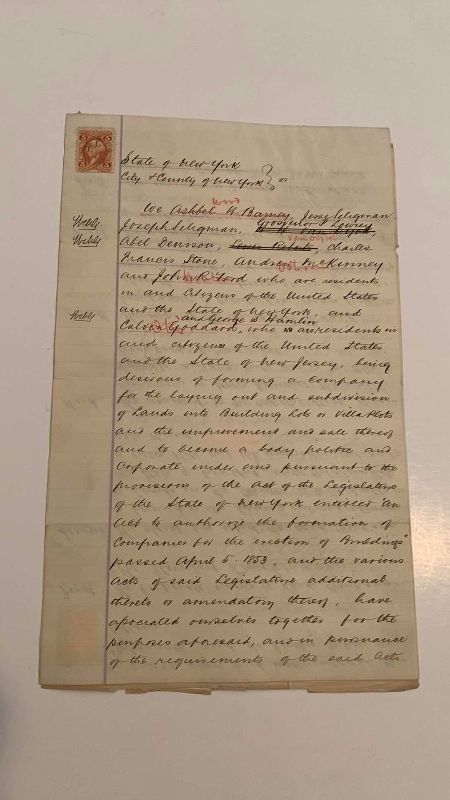 State of New York
City & County of New York } ss
We Ashbel H Barney, Jesse Seligman
Joseph Seligman, Grosvenor P Lowrey
Abel Denison, Charles
Francis Stone, Andrew McKinney
and John R. Ford who are residents
in and Citizens of the United States
and the State of New York, and
and George W Hamlin
Calvin Goddard, who are residents in
and citizens of the United States
and the State of New Jersey, being
desirous of forming a company
for the laying out and subdivision
of Lands into Building Lots or Villa Plots
and the improvement and sale thereof
and to become a body politic and
Corporate under and pursuant to the
provisions of the Act of the Legislature
of the State of New York entitled "An
Act to authorize the formation of
Companies for the erection of Buildings"
passed April 5. 1853, and the various
Acts of said Legislature additional
thereto or amendatory thereof, have
associated ourselves together for the
purposes aforesaid, and in pursuance
of the requirements of the said Acts